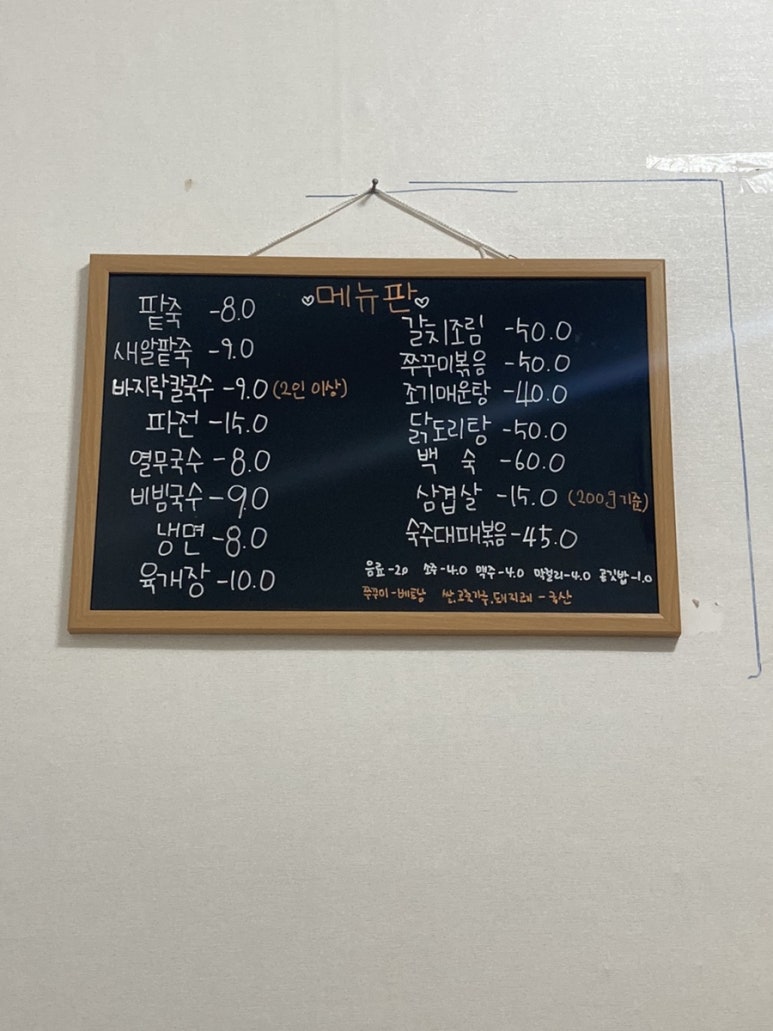 ♡메뉴판♡
팥죽 -8.0
새알팥죽 -9.0
바지락칼국수 -9.0 (2인 이상)
파전 -15.0
열무국수 -8.0
비빔국수 -9.0
냉면 -8.0
육개장 -10.0
갈치조림 -50.0
쭈꾸미볶음 -50.0
조기매운탕 -40.0
닭도리탕 -50.0
백 숙 -60.0
삼겹살 -15.0 (200g기준)
숙주대패볶음 -45.0
음료 -2.0 소주 -4.0 맥주 -4.0 막걸리 -4.0 공깃밥 -1.0
쭈꾸미 -베트남 쌀, 고춧가루, 돼지고기 -국산